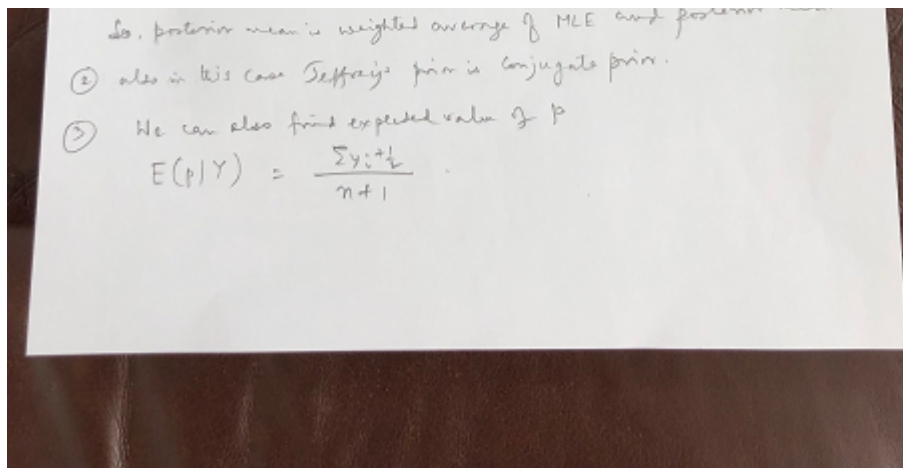 So, posterior mean is weighted average of MLE and posterior
② also in this case Jeffrey's prior is conjugate prior.
③ We can also find expected value of p
E(p|Y) = (Σyi + 1/2) / (n + 1)